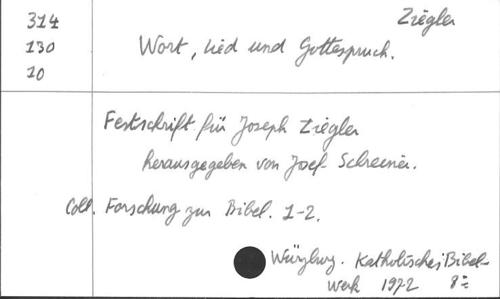 314
Ziegler
130
Wort, Lied und Gottespruch.
10
Festschrift für Joseph Ziegler
herausgegeben von Josef Schreiner.
Coll. Forschung zur Bibel. 1-2.
Würzburg. Katholisches Bibel-
werk 1972 8º